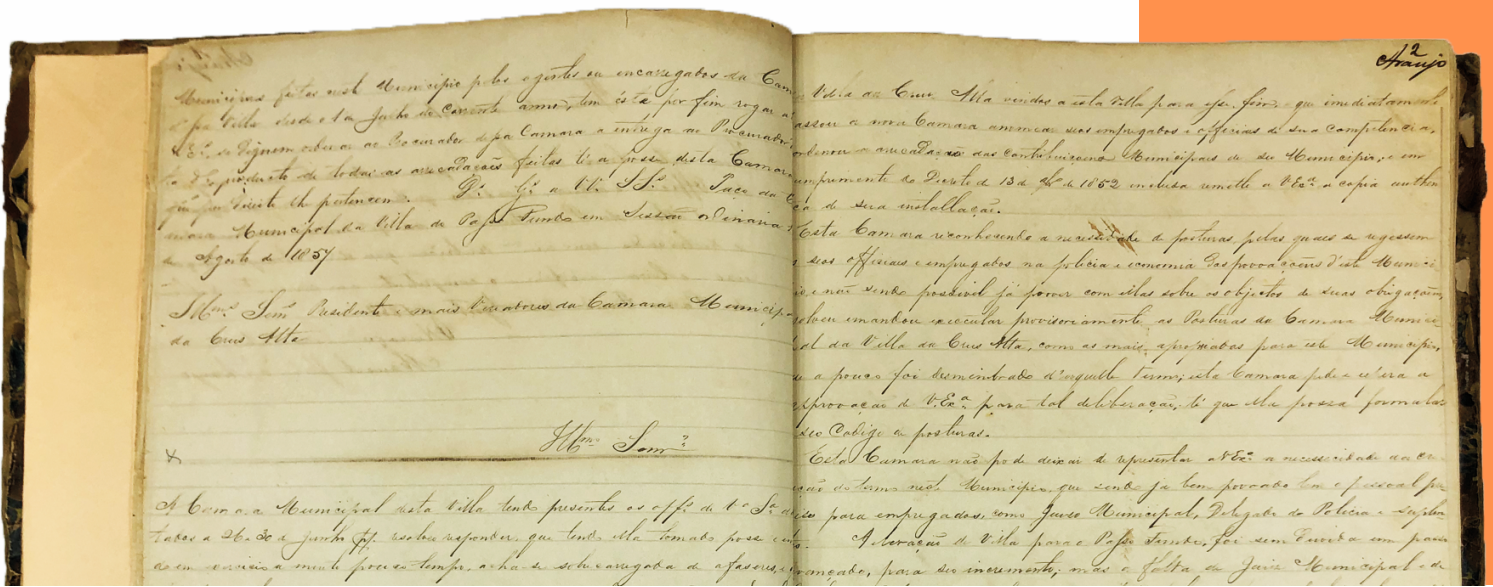 Municipaes feitas neste Municipio pelos agentes ou encarregados da Cam
Villa desde o 1º de Junho do corrente anno, tem ésta por fim rogar a
se dignem ordenar ao Procurador dessa Camara a entrega ao Procurador
producto de todas as arrecadações feitas té a posse desta Camara
que por direito lhe pertencem. Dˢ Gᵉ a VV. SSˢ Paço da C
mara Municipal da Villa de Passo Fundo em Sessão ordinaria
de Agosto de 1857
Illmos Senrˢ Presidente e mais Vereadores da Camara Municipal
da Crus Alta
Illmo Senr
A Camara Municipal desta Villa tendo presentes os offˢ de Vª Sª da
tados a 26 e 30 de Junho pp. resolveu responder, que tendo ella tomado posse
a muito pouco tempo, acha-se sobrecarregada de afaseres, e
2
Araujo
Villa da Crus Alta vindos a esta Villa para esse fim, que imediatamente
assou a nova Camara a nomear seos empregados e officiaes de sua competencia,
ordenou a arrecadação das contribuiçoens Municipaes de seo Municipio, e em
umprimento do Decreto de 13 de de 1832 incluza remette a V.Exª a copia authen
ca de sua installação.
Esta Camara reconhesendo a necessidade de posturas, pelas quaes se regessem
os seos officiaes e empregados na policia e economia das povoaçoens d'este Munici
io, e não sendo possivel já prover com ellas sobre os objectos de suas obrigaçoens,
solveu e mandou executar provisoriamente as Posturas da Camara Munici
al da Villa da Crus Alta, como as mais apropiadas para este Municipio,
ue a pouco foi desmembrado d'aquelle termo; esta Camara pede e espera a
approvação de V.Exª para tal deliberação, té que ella possa formular
seo Codigo de posturas.
Esta Camara não pode deixar de representar a V.Exª a necessidade da cr
eação do termo neste Municipio, que sendo já bem povoado tem o pessoal pre
ciso para empregados, como Juizo Municipal, Delegado de Policia e Suplen
tes. A elevação de Villa para o Passo Fundo, foi sem duvida um passo
avançado, para seo incremento; mas a falta de Juiz Municipal e de